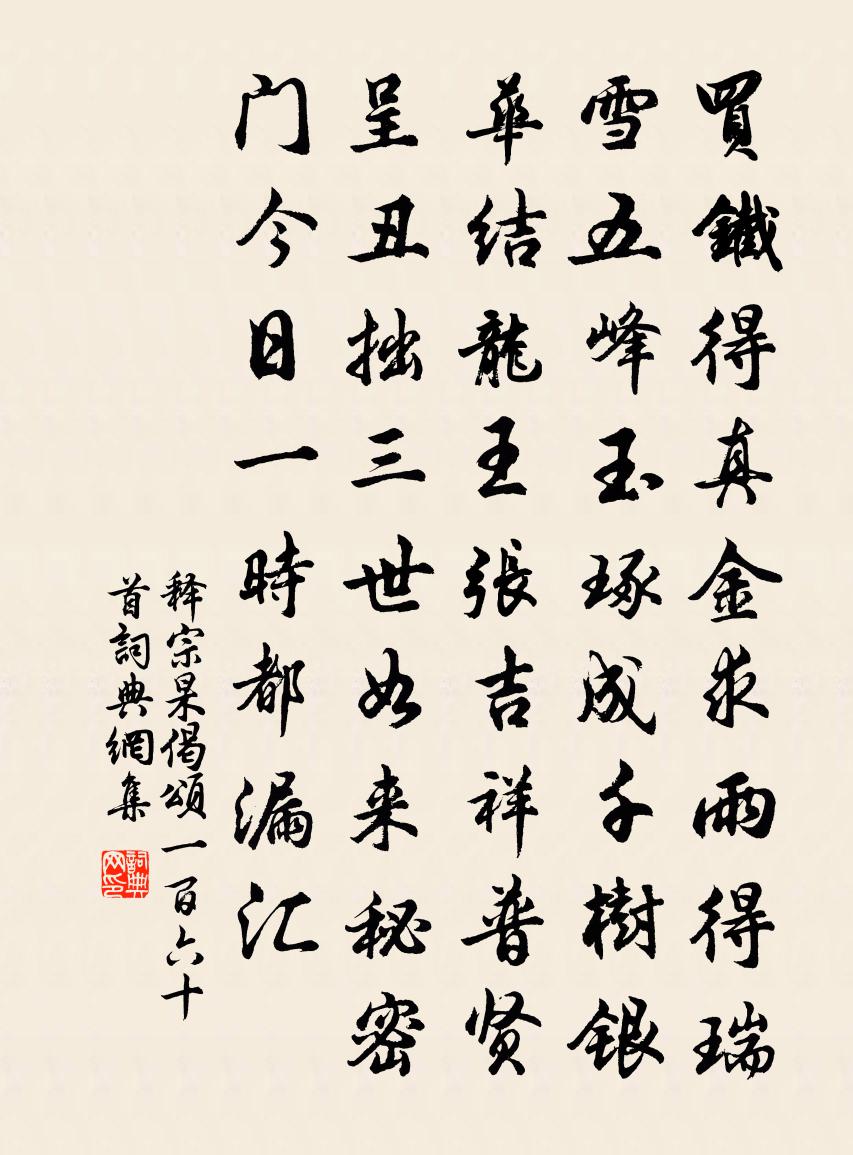 買鐵得真金求雨得瑞
雪五峰玉琢成千樹銀
華结龍王張吉祥普贤
呈丑拙三世如来秘密
门今日一時都漏汇
释宗杲偈頌一百六十
首詞典網集
詞典网印